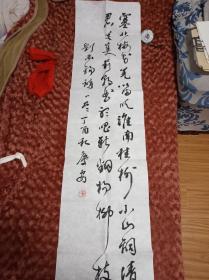 塞北梅花羌笛吹淮南桂树小山词请
君莫奏前朝曲听唱新翻杨柳枝
刘禹锡诗一首丁酉秋